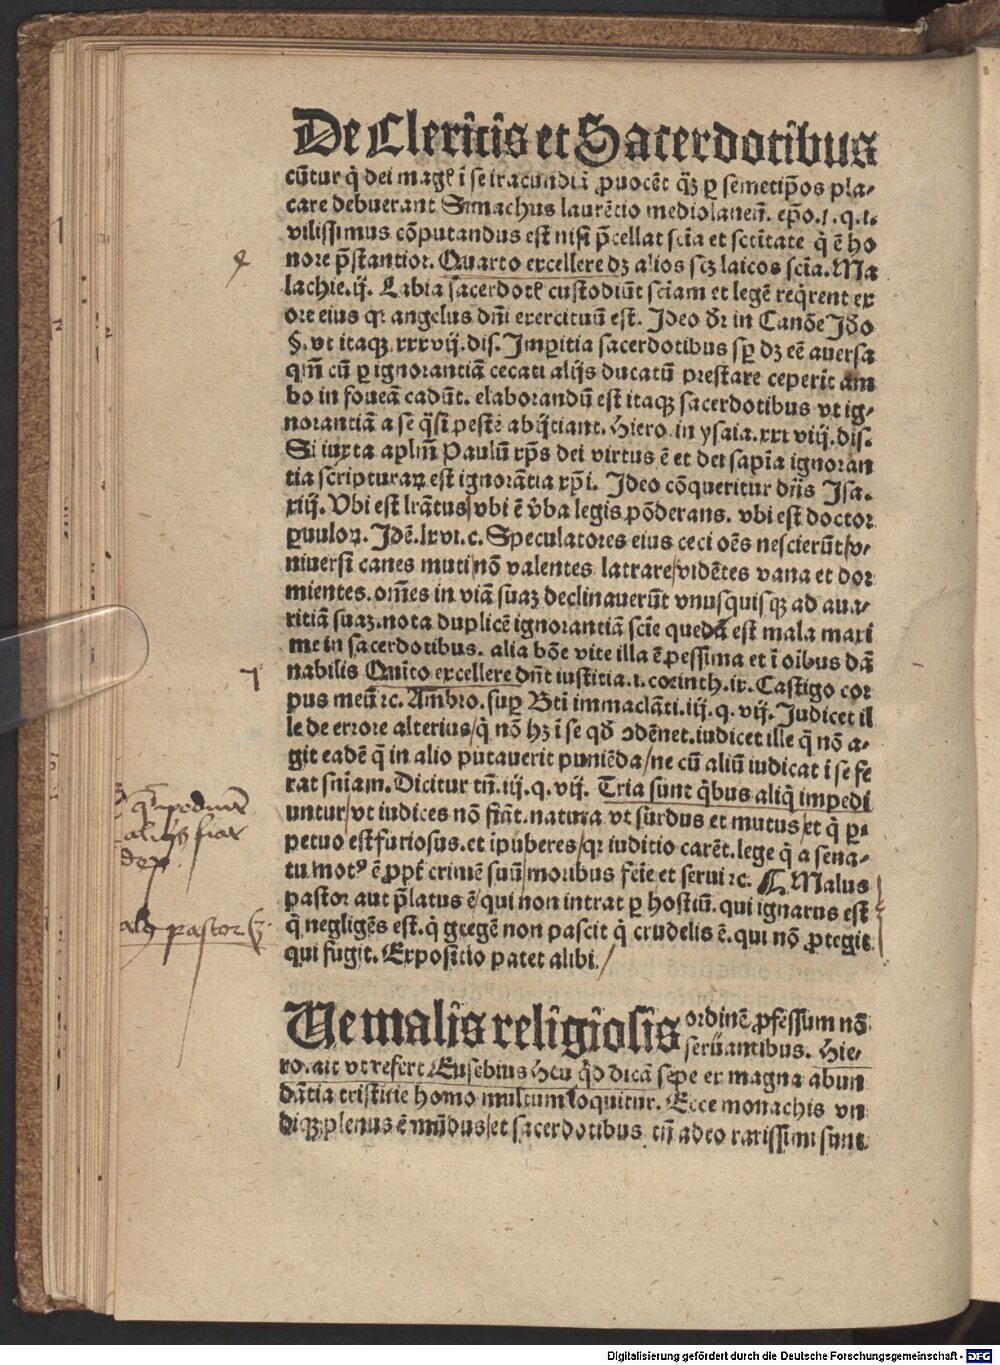 De Clericis et Sacerdotibus
cūtur q̄ dei magꝭ ī se iracundiā ꝓuocēt q̄ꝫ ꝑ semetip̄os pla-
care debuerant Simachus laurētio mediolaneñ. ep̄o.1.q.1.
vilissimus cōputandus est nisi p̄cellat scīa et sctītate q̄ ē ho
nore p̄stantior. Quarto excellere dꝫ alios scꝫ laicos scīa. Ma
lachie.ij. Labia sacerdotꝭ custodiūt sciam et legē reqrent ex
ore eius qꝛ angelus dn̄i exercituū est. Ideo dr̄ in Canōe Ido
§. vt itaqꝫ.xxxvij.dis. Imꝑitia sacerdotibus sꝑ dꝫ eē auersa
qm̄ cū ꝑ ignorantiā cecati alijs ducatū prestare ceperit am
bo in foueā cadūt. elaborandū est itaqꝫ sacerdotibus vt ig-
norantiā a se q̄si pestē abijtiant. Hiero.in ysaia.xxxviij.dis.
Si iuxta aplm̄ Paulū xp̄s dei virtus ē et dei sapīa ignoran
tia scripturaꝝ est ignorātia xp̄i. Ideo cōqueritur dn̄s Isa.
xiij. Vbi est lrātus/vbi ē v̄ba legis pōderans. vbi est doctor
ꝑuuloꝝ. Idē.lxvi.c. Speculatores eius ceci oēs nescierūt/v-
niuersi canes muti/nō valentes latrare/vidētes vana et dor
mientes.om̄es in viā suaꝫ declinauerūt vnusquisqꝫ ad aua-
ritiā suaꝫ.nota duplicē ignorantiā scīe quedā est mala maxi
me in sacerdotibus. alia bōe vite illa ē pessima et ī oībus dā
nabilis Quīto excellere dn̄t iustitia.1.corinth.ix. Castigo cor
pus meū ⁊c. Ambro.suꝑ Bt̄i immaclāti.iij.q.vij. Iudicet il
le de errore alterius/q̄ nō hꝫ ī se qd̄ ꝯdēnet.iudicet ille q̄ nō a-
git eadē q̄ in alio putauerit puniēda/ne cū aliū iudicat ī se fe
rat sn̄iam. Dicitur tn̄.iij.q.vij. Tria sunt q̄bus aliq̄ impedi
untur/vt iudices nō fiāt.natura vt surdus et mutus/et q̄ ꝑ-
petuo est furiosus.et ipuberes/qꝛ iuditio carēt.lege q̄ a sena-
tu motꝰ ē ꝓpt̄ crimē suū/moribus feīe et serui ⁊c. ¶ Malus
pastor aut p̄latus ē/qui non intrat ꝑ hostiū.qui ignarus est
q̄ negligēs est.q̄ gregē non pascit q̄ crudelis ē.qui nō ꝓtegit
qui fugit. Expositio patet alibi./
alꝫ pastor
Ve malis religiosis ordinē ꝓfessum nō
seruantibus. Hie-
ro.ait vt refert Eusebius Heu q̄d dicā sepe ex magna abun
dātia tristitie homo multum loquitur. Ecce monachis vn
diqꝫ plenus ē mūdus/et sacerdotibus tn̄ adeo rarissimi sunt
Digitalisierung gefördert durch die Deutsche Forschungsgemeinschaft - DFG